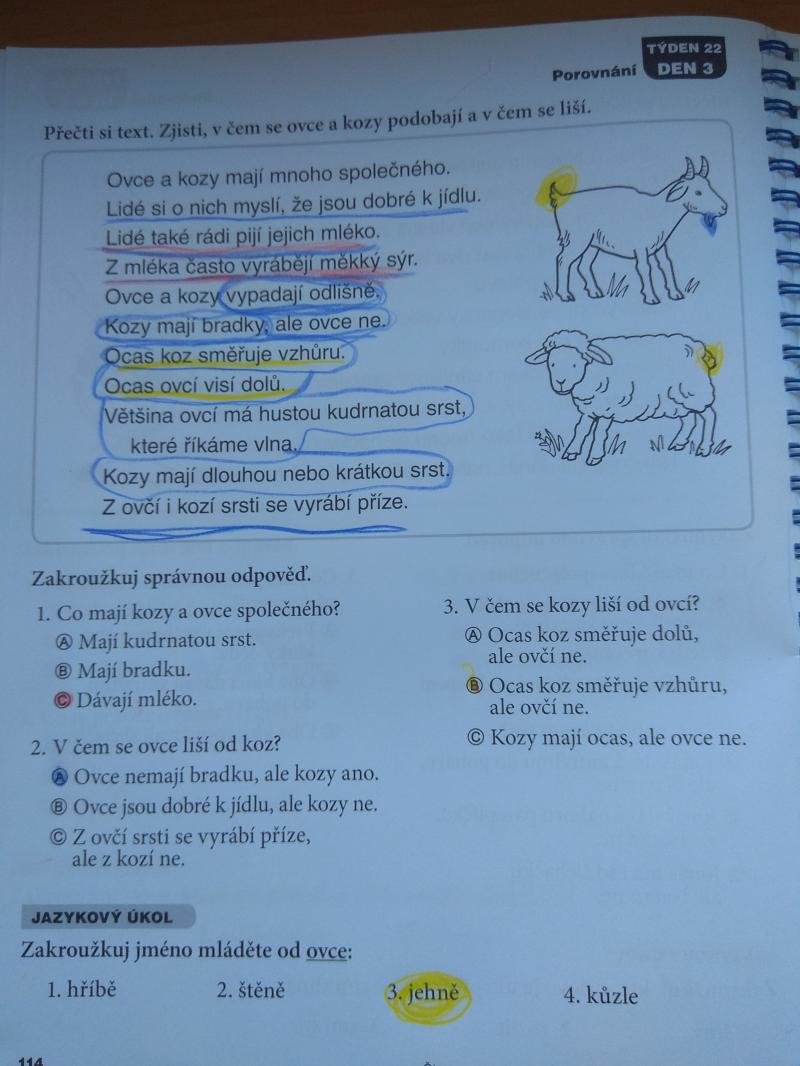 TÝDEN 22
Porovnání DEN 3
Přečti si text. Zjisti, v čem se ovce a kozy podobají a v čem se liší.
Ovce a kozy mají mnoho společného.
Lidé si o nich myslí, že jsou dobré k jídlu.
Lidé také rádi pijí jejich mléko.
Z mléka často vyrábějí měkký sýr.
Ovce a kozy vypadají odlišně.
Kozy mají bradky, ale ovce ne.
Ocas koz směřuje vzhůru.
Ocas ovcí visí dolů.
Většina ovcí má hustou kudrnatou srst,
které říkáme vlna.
Kozy mají dlouhou nebo krátkou srst.
Z ovčí i kozí srsti se vyrábí příze.
Zakroužkuj správnou odpověď.
1. Co mají kozy a ovce společného?
Ⓐ Mají kudrnatou srst.
Ⓑ Mají bradku.
Ⓒ Dávají mléko.
2. V čem se ovce liší od koz?
Ⓐ Ovce nemají bradku, ale kozy ano.
Ⓑ Ovce jsou dobré k jídlu, ale kozy ne.
Ⓒ Z ovčí srsti se vyrábí příze,
ale z kozí ne.
3. V čem se kozy liší od ovcí?
Ⓐ Ocas koz směřuje dolů,
ale ovčí ne.
Ⓑ Ocas koz směřuje vzhůru,
ale ovčí ne.
Ⓒ Kozy mají ocas, ale ovce ne.
JAZYKOVÝ ÚKOL
Zakroužkuj jméno mláděte od ovce:
1. hříbě 2. štěně 3. jehně 4. kůzle
114